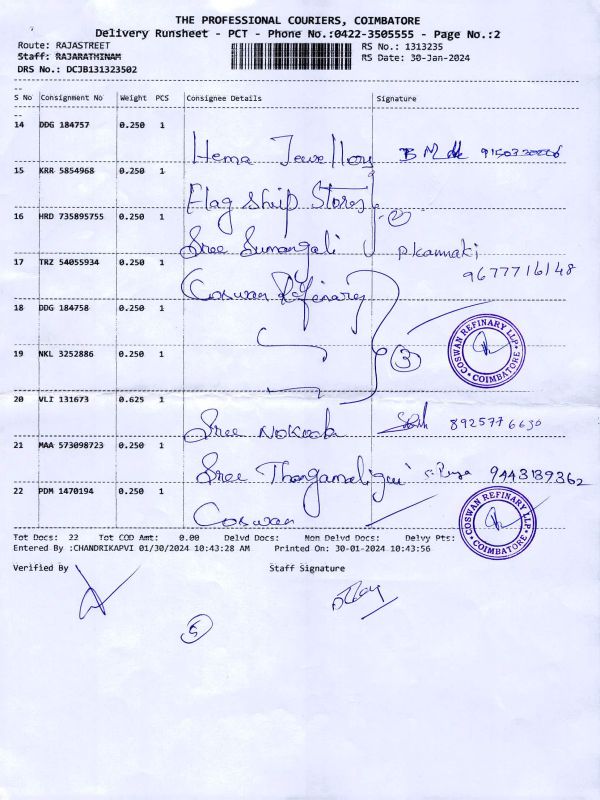 THE PROFESSIONAL COURIERS, COIMBATORE
Delivery Runsheet - PCT - Phone No.:0422-3505555 - Page No.:2
Route: RAJASTREET RS No.: 1313235
Staff: RAJARATHINAM RS Date: 30-Jan-2024
DRS No.: DCJB131323502
S No Consignment No Weight PCS Consignee Details Signature
14 DDG 184757 0.250 1
Hema Jewellery
15 KRR 5854968 0.250 1
Flag Ship Stores
16 HRD 735895755 0.250 1 2
Sree Sumangali P.Kannaki
17 TRZ 54055934 0.250 1 9677716148
Coswan Refinary
18 DDG 184758 0.250 1
COSWAN REFINARY LLP. COIMBATORE
19 NKL 3252886 0.250 1 3
20 VLI 131673 0.625 1
Sree 8925776630
21 MAA 573098723 0.250 1
Sree Thangamaligai 9443139362
22 PDM 1470194 0.250 1
Coswan COSWAN REFINARY LLP. COIMBATORE
Tot Docs: 22 Tot COD Amt: 0.00 Delvd Docs: Non Delvd Docs: Delvy Pts:
Entered By :CHANDRIKAPVI 01/30/2024 10:43:28 AM Printed On: 30-01-2024 10:43:56
Verified By Staff Signature
5